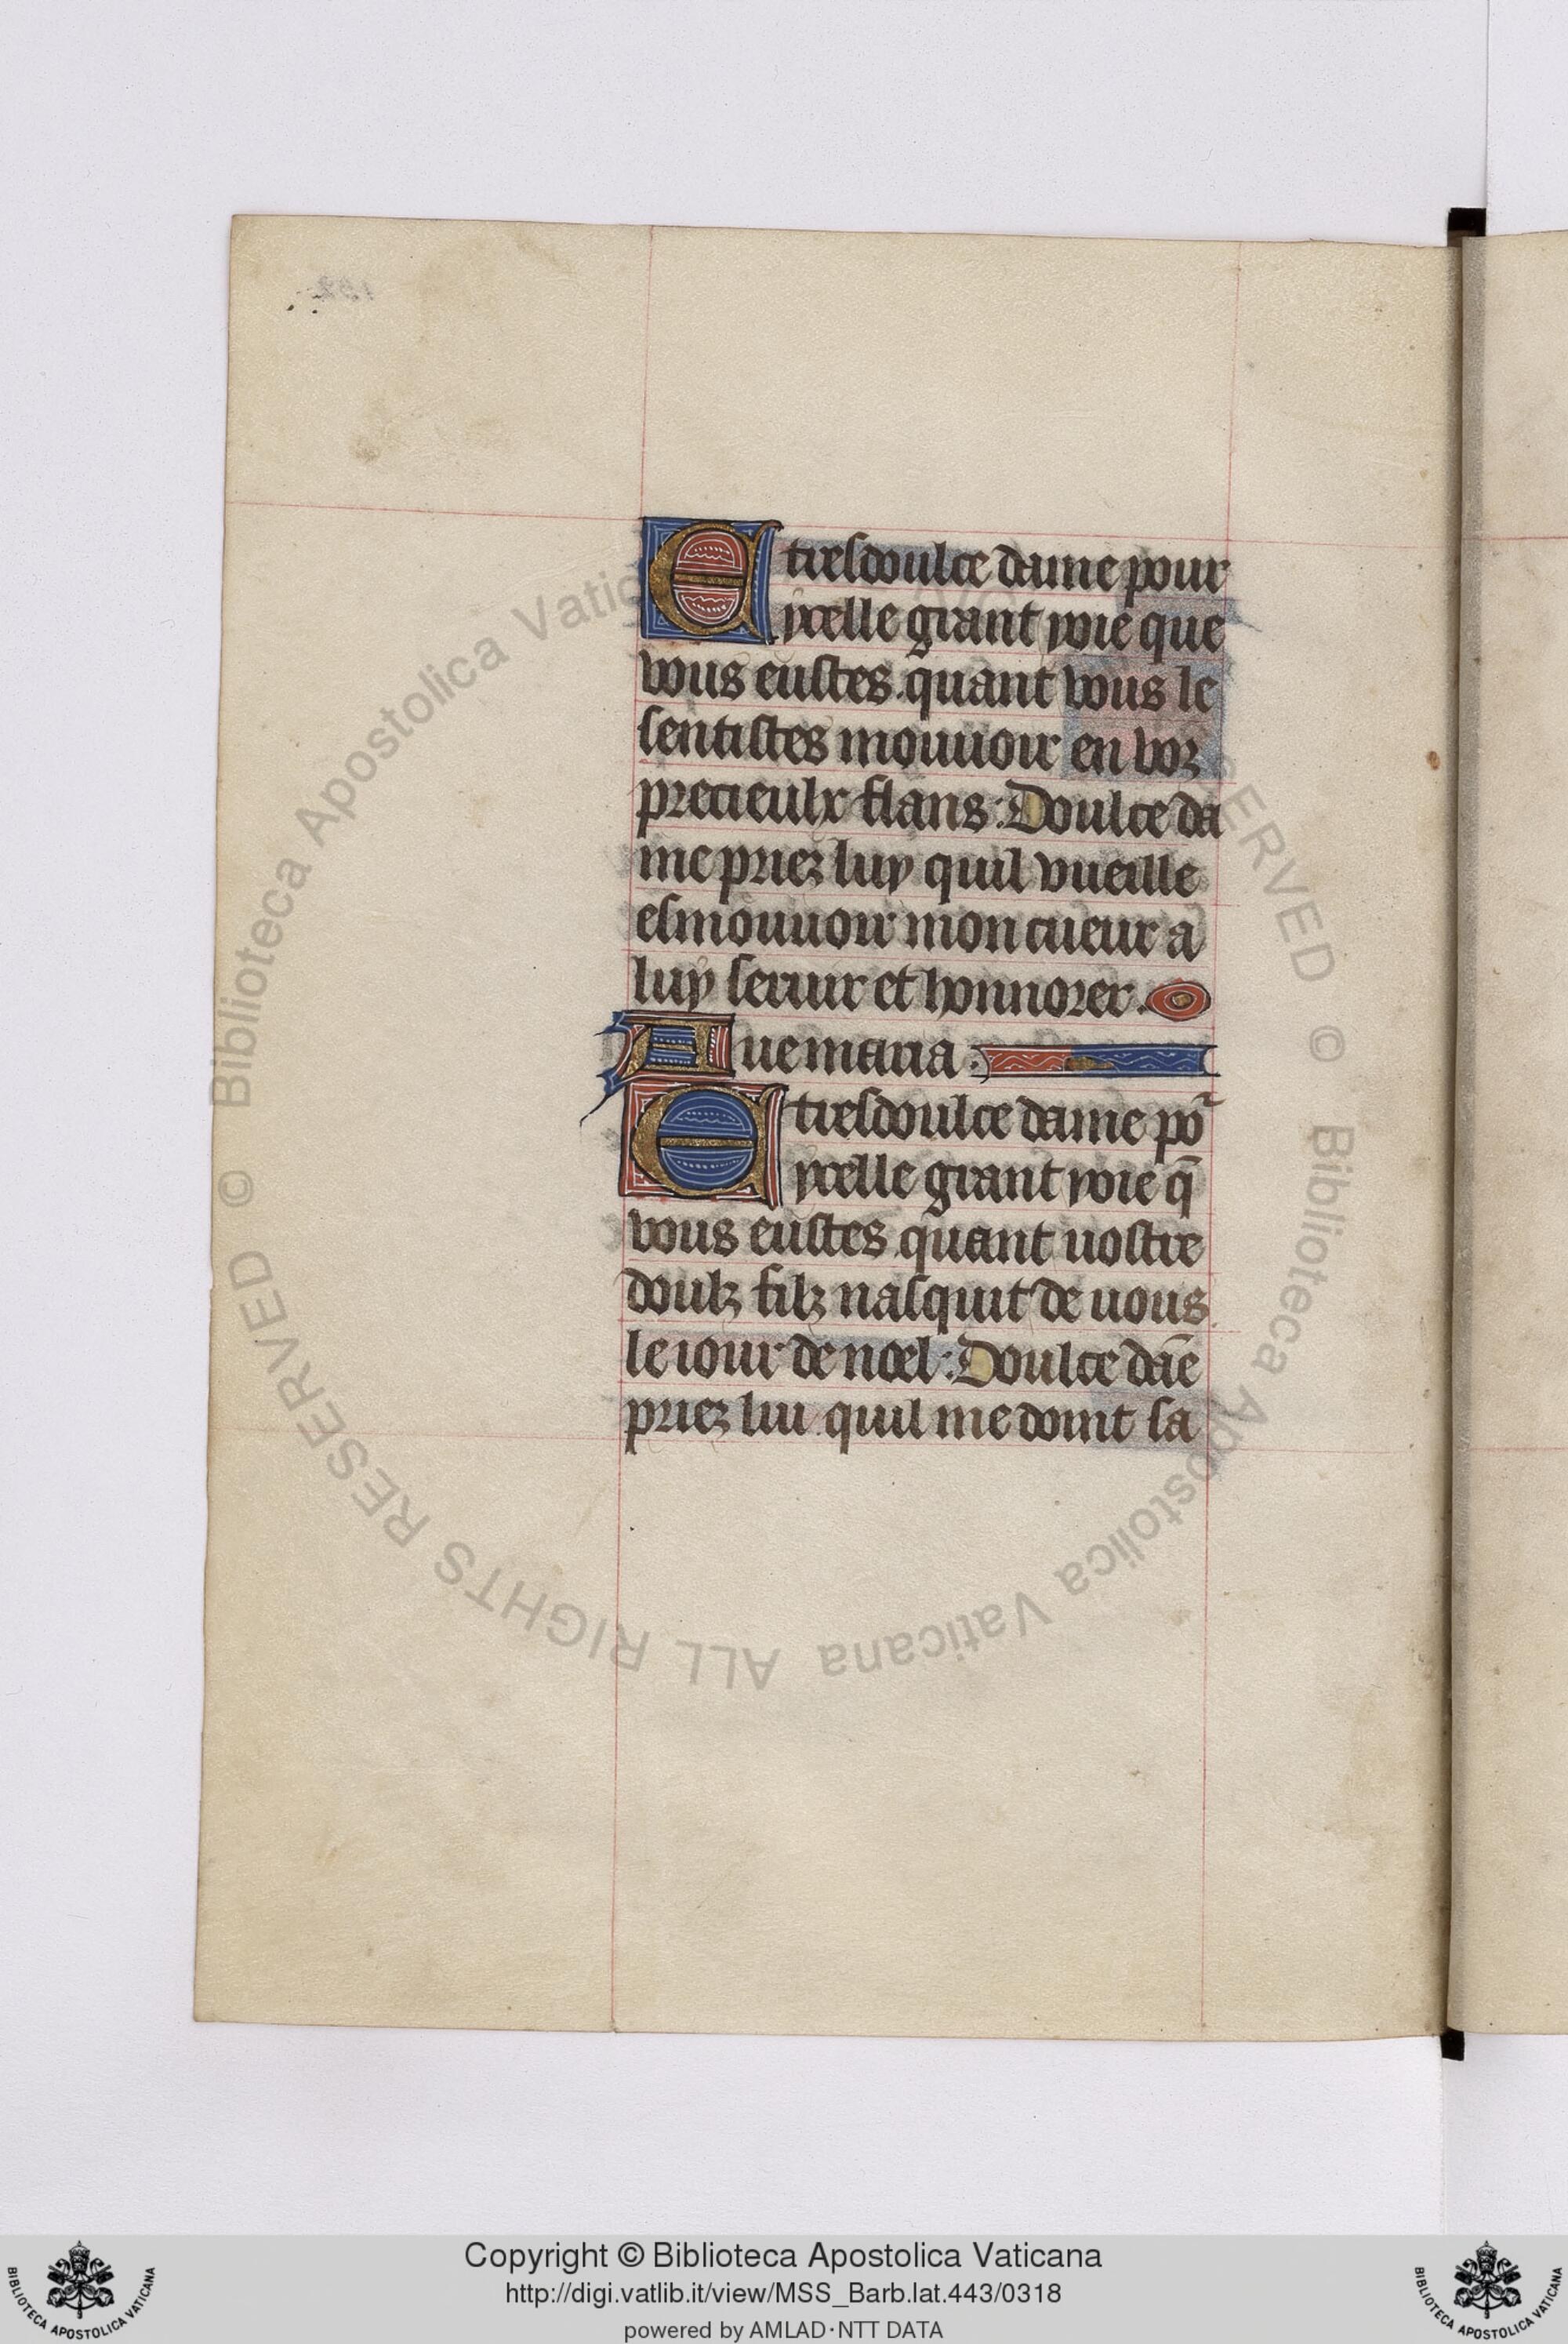 E tresdoulce dame pour
ycelle grant ioie que
vous eustes. quant vous le
sentistes mouuoir en voz
precieulx flans: Doulce da
me priez luy quil vueille
esmouuoir mon cueur a
luy seruir et honnorer.
Aue maria.
E tresdoulce dame po᷑
ycelle grant ioie q̄
vous eustes. quant uostre
doulz filz nasquit de uous.
le iour de noel: Doulce dāe
priez lui quil me doint sa
© Biblioteca Apostolica Vaticana ALL RIGHTS RESERVED
Copyright © Biblioteca Apostolica Vaticana
http://digi.vatlib.it/view/MSS_Barb.lat.443/0318
powered by AMLAD·NTT DATA
BIBLIOTECA APOSTOLICA VATICANA
BIBLIOTECA APOSTOLICA VATICANA